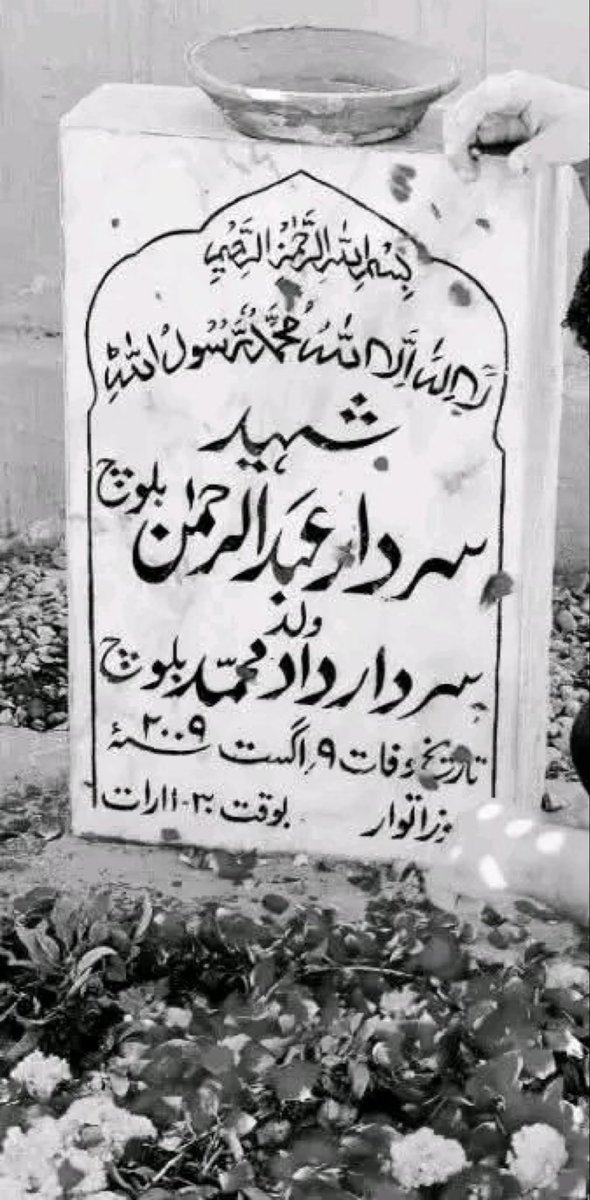 بِسْمِ اللهِ الرَّحْمٰنِ الرَّحِيْمِ
لَا اِلٰهَ اِلَّا اللهُ مُحَمَّدٌ رَّسُوْلُ اللهِ
شہید
سردار عبدالرحمٰن بلوچ
ولد
سردار داد محمّد بلوچ
تاریخ وفات ۹؍اگست ۲۰۰۹ء
روز اتوار بوقت رات